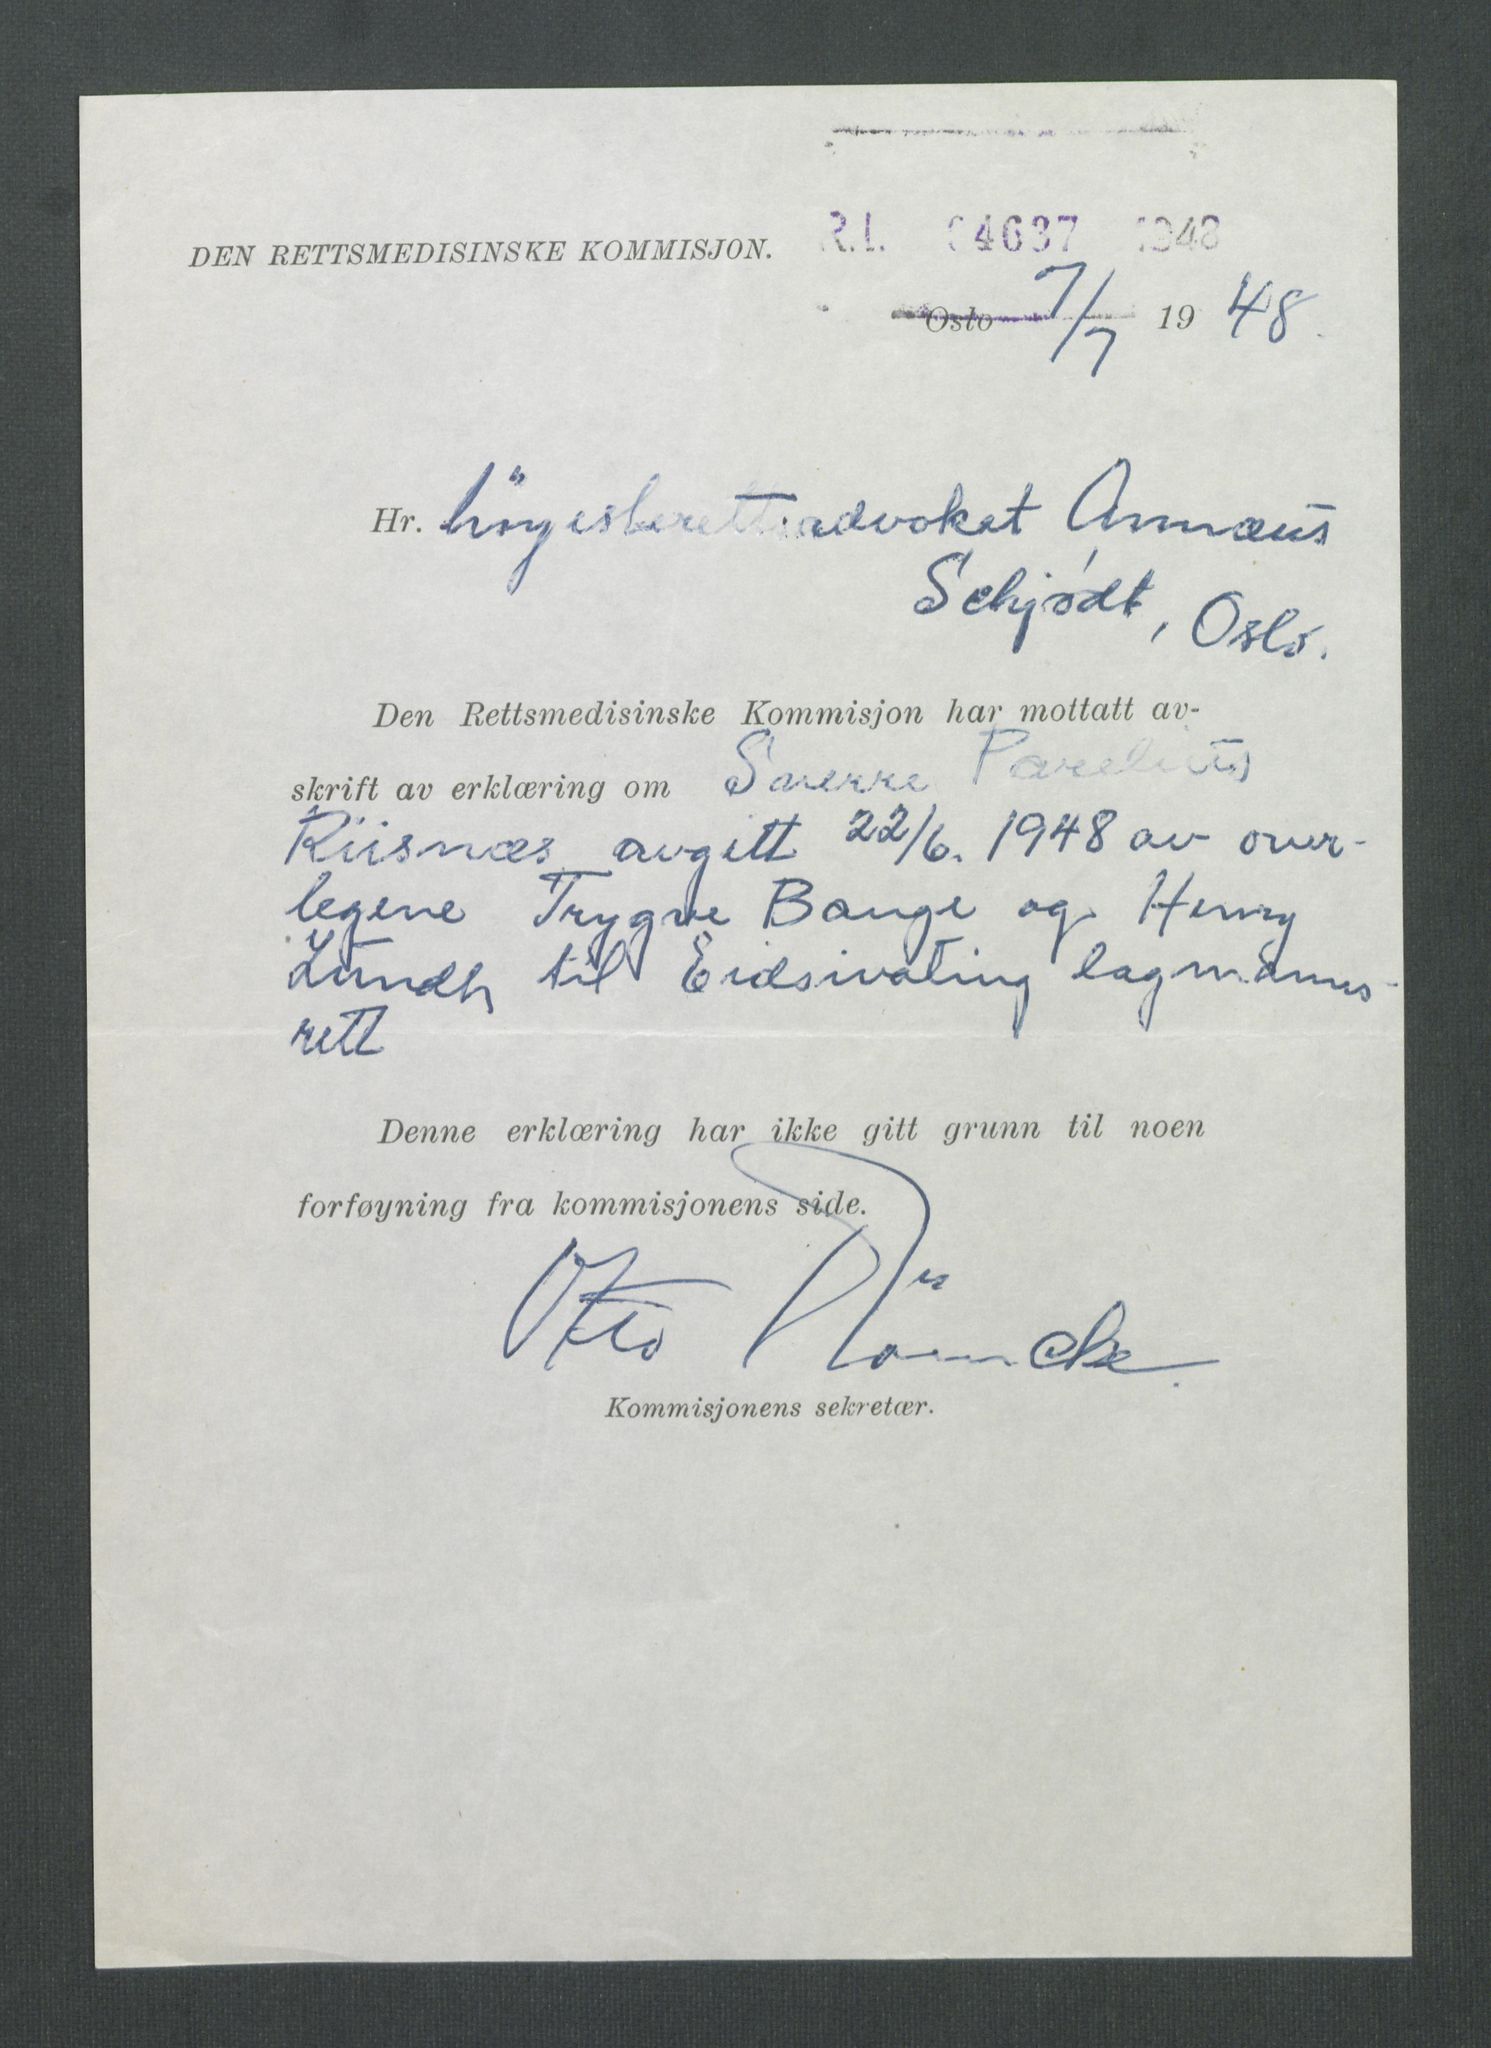 R.L. 04637 1948
DEN RETTSMEDISINSKE KOMMISJON.
Oslo 7/7 1948.
Hr. höyesterettsadvokat Annæus
Schjødt, Oslo.
Den Rettsmedisinske Kommisjon har mottatt av-
skrift av erklæring om Sverre Parelius
Riisnæs avgitt 22/6. 1948 av over-
legene Trygve Bange og Henry
Lundh til Eidsivating lagmanns-
rett
Denne erklæring har ikke gitt grunn til noen
forføyning fra kommisjonens side.
Otto
Kommisjonens sekretær.